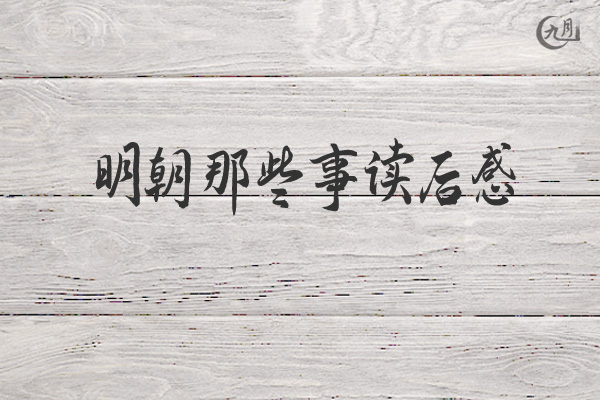 九月
明朝那些事读后感